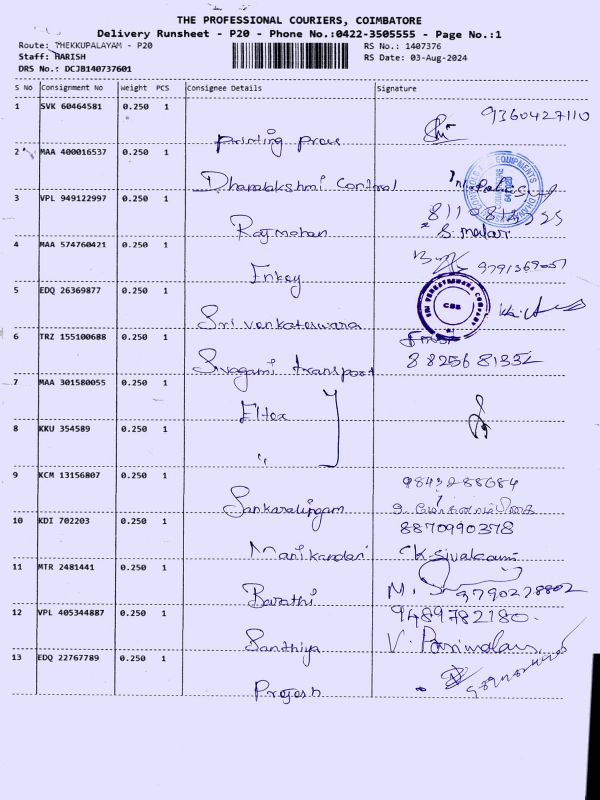 THE PROFESSIONAL COURIERS, COIMBATORE
Delivery Runsheet - P20 - Phone No.:0422-3505555 - Page No.:1
Route: THEKKUPALAYAM - P20
RS No.: 1407376
Staff: HARISH
RS Date: 03-Aug-2024
DRS No.: DCJB140737601
S No Consignment No Weight PCS Consignee Details Signature
1 SVK 60464581 0.250 1
9360427110
printing
2 MAA 400016537 0.250 1
Dhanalakshmi Control
3 VPL 949122997 0.250 1
Rajmohan S. malar
4 MAA 574760421 0.250 1
Enkey
5 EDQ 26369877 0.250 1
SRI VENKATESWARA COMPANY
CBE
Sri venkateswara
6 TRZ 155100688 0.250 1
Sivagami transport
7 MAA 301580055 0.250 1
Eltex
8 KKU 354589 0.250 1
"
9 KCM 13156807 0.250 1
9843288684
Sankaralingam
10 KDI 702203 0.250 1
8870990378
Manikandan
11 MTR 2481441 0.250 1
Barathi M. 9790278802
12 VPL 405344887 0.250 1
9489782180.
Sandhiya V. Parimalam
13 EDQ 22767789 0.250 1
Prajesh